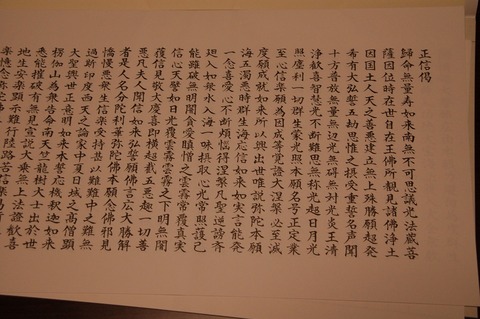 正信偈
歸命無量寿如来南無不可思議光法蔵菩
薩因位時在世自在王佛所覩見諸佛浄土
因国土人天之善悪建立無上殊勝願超発
希有大弘誓五劫思惟之摂受重誓名声聞
十方普放無量無辺光無碍無対光炎王清
浄歓喜智慧光不断難思無称光超日月光
照塵刹一切群生蒙光照本願名号正定業
至心信楽願為因成等覚證大涅槃必至滅
度願成就如来所以興出世唯説弥陀本願
海五濁悪時群生海応信如来如実言能発
一念喜愛心不断煩悩得涅槃凡聖逆謗斉
廻入如衆水入海一味摂取心光常照護已
能雖破無明闇貪愛瞋憎之雲霧常覆真実
信心天譬如日光覆雲霧雲霧之下明無闇
獲信見敬大慶喜即横超截五悪趣一切善
悪凡夫人聞信如来弘誓願佛言広大勝解
者是人名分陀利華弥陀佛本願念佛邪見
憍慢悪衆生信楽受持甚以難難中之難無
過斯印度西天之論家中夏日域之高僧顕
大聖興世正意明如来本誓応機釈迦如来
楞伽山為衆告命南天竺龍樹大士出於世
悉能摧破有無見宣説大乗無上法證歓喜
地生安楽顕示難行陸路苦信楽易行
楽憶念弥陀佛